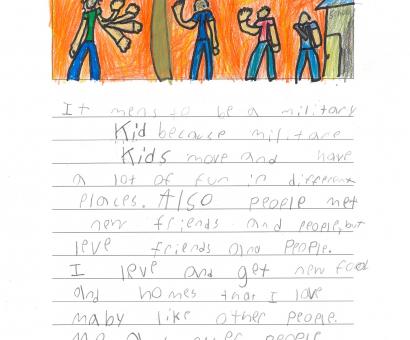 It mens to be a military
Kid because militare
Kids move and have
a lot of fun in different
places. Also people met
new friends and people, but
leve friends and people.
I leve and get new food
and homes that I love
maby like other people.